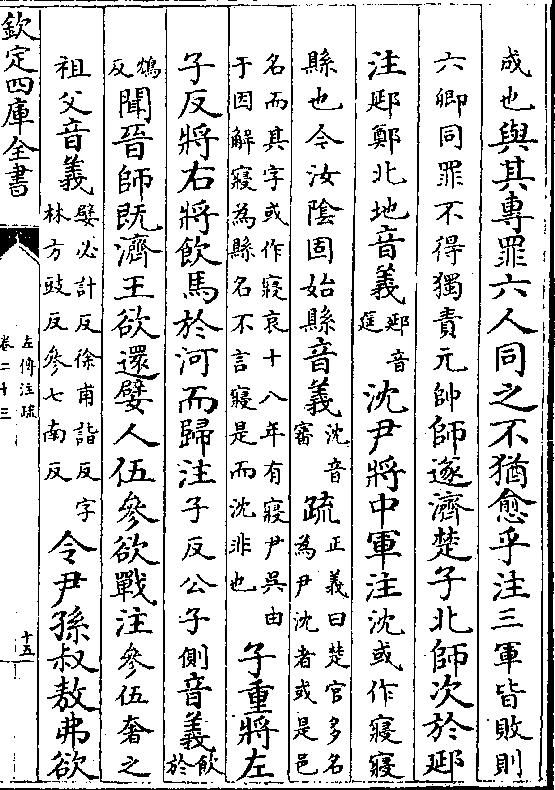 成也與其專罪六人同之不猶愈乎注三軍皆敗則
六卿同罪不得獨責元帥師遂濟楚子北師次於郔
注郔鄭北地音義郔音延沈尹將中軍注沈或作寢寢
縣也今汝陰固始縣音義沈音審疏正義曰楚官多名為尹沈者或是邑
名而其字或作寢哀十八年有寢尹吳由于因解寢為縣名不言寢是而沈非也子重將左
子反將右將飲馬於河而歸注子反公子側音義飲於
鴆反聞晉師既濟王欲還嬖人伍參欲戰注參伍奢之
祖父音義嬖必計反徐甫詣反字林方豉反參七南反令尹孫叔敖弗欲
欽定四庫全書
左傳注疏
卷二十三
十五